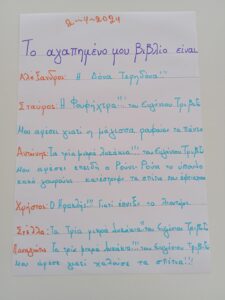 2-4-2024
Το αγαπημένο μου βιβλίο είναι
Αλέξανδρος: Η Δόνα Τερηδόνα!!
Σταύρος: Η Φρουφήχτρα!!! του Ευγένιου Τριβιζά
Μου αρέσει γιατί η μάγισσα ρουφάει τα πάντα
Αντώνης: Τα τρία μικρά λυκάκια!!! του Ευγένιου Τριβιζά
Μου αρέσει επειδή ο Ρούνι-Ρούνι το ύπουλο
κακό γουρούνι καταστρέφει τα σπίτια που έφτιαχναν
Χρήστος: Ο Ηρακλής!!! Γιατί έσωζε το
Στέλλα: Τα Τρία μικρά λυκάκια!!! του Ευγένιου Τριβιζά
Παναγιώτης: Τα τρία μικρά λυκάκια!!! του Ευγένιου Τριβιζά
Μου αρέσει γιατί χαλούσε τα σπίτια!!!